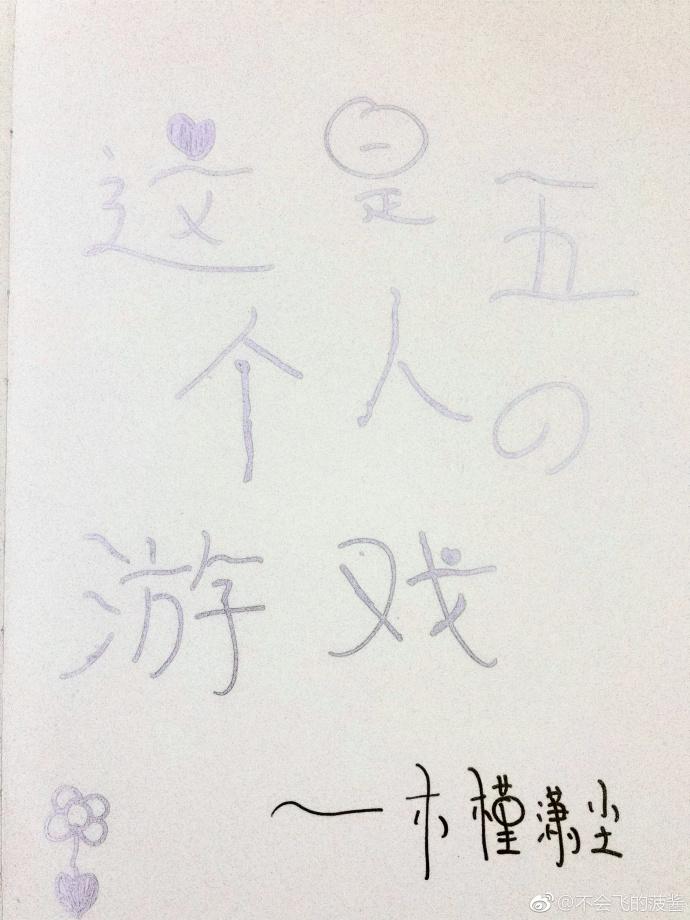 这是五
个人の
游戏
～一木槿潇尘
@不会飞的菠酱